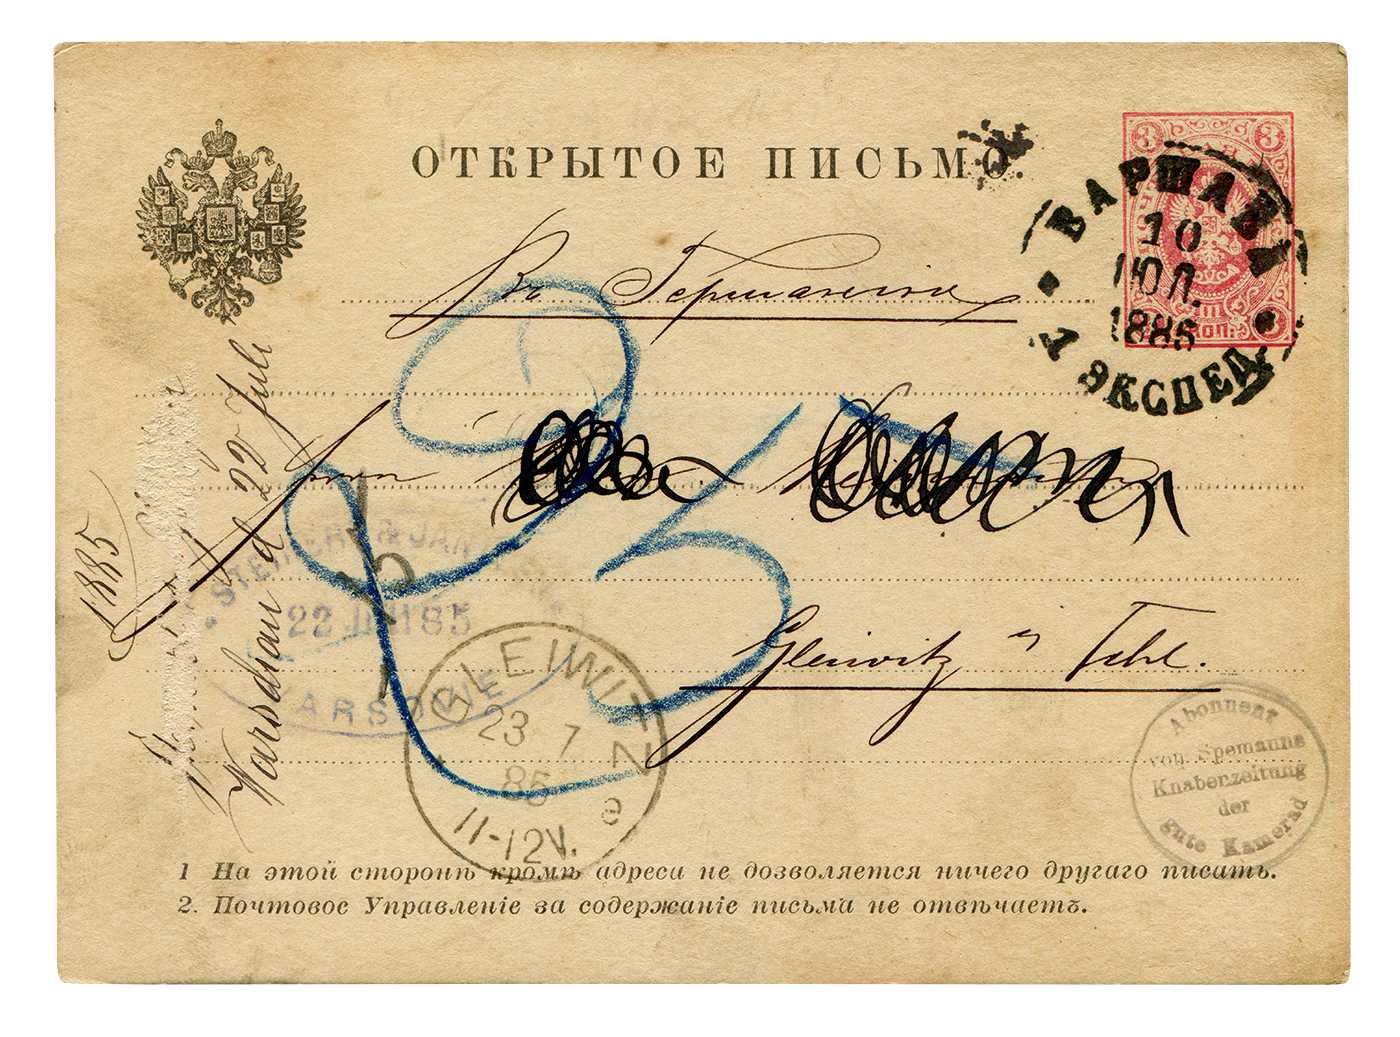 ОТКРЫТОЕ ПИСЬМО.
3 3
КОП.
ВАРШАВА
10
ІЮЛ.
1885
ЭКСПЕД.
Въ Германію
Gleiwitz
Warschau d 22 Juli
1885
STEINERT & JAN
22 JUIL 85
VARSOVIE
GLEIWITZ
23 7
85
11-12V.
e
Abonnent
von Spemanns
Knabenzeitung
der
gute Kamerad
1 На этой сторонѣ кромѣ адреса не дозволяется ничего другаго писать.
2. Почтовое Управленіе за содержаніе письма не отвѣчаетъ.